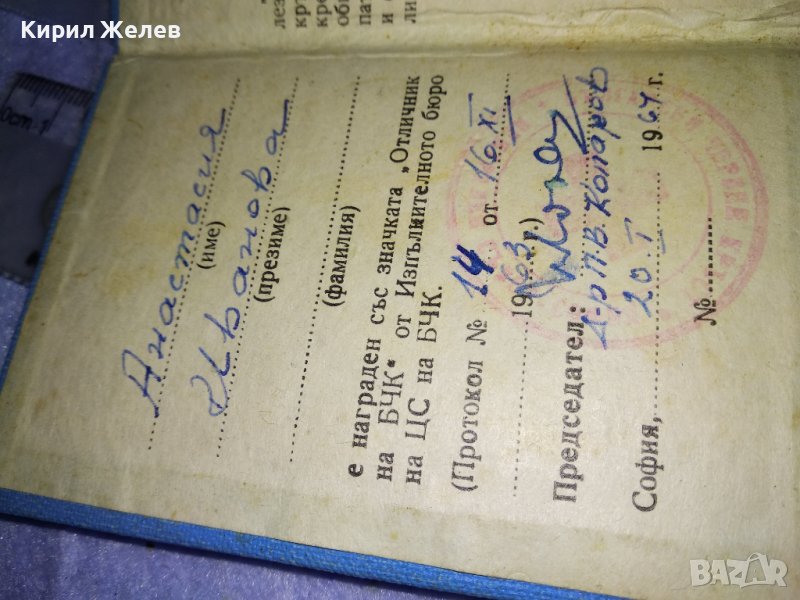 Кирил Желев
Анастасия
(име)
Иванова
(презиме)
(фамилия)
е награден със значката „Отличник
на БЧК“ от Изпълнителното бюро
на ЦС на БЧК.
(Протокол № 14 от 16.XI
1963 г.)
Председател:
Д-р П. В. Коларов
София, 20 I 1964 г.
№
BAZAR